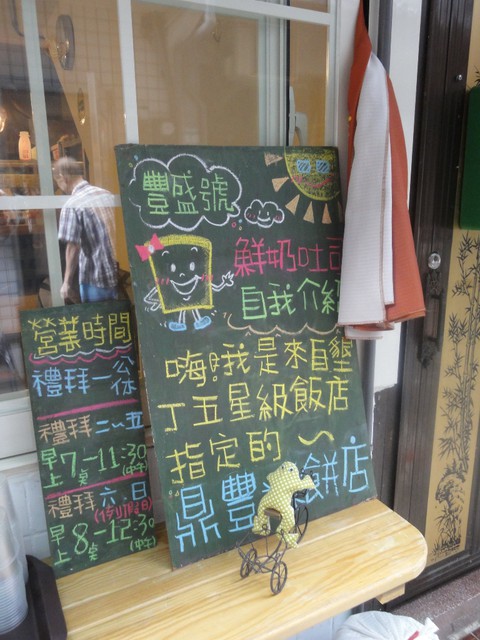 營業時間
禮拜一公休
禮拜二~五
早上7點-11:30(中午)
禮拜六.日
(例假日)
早上8點-12:30(中午)
豐盛號
鮮奶吐司
自我介紹
嗨!我是來自墾
丁五星級飯店
指定的~
鼎豐 餅店